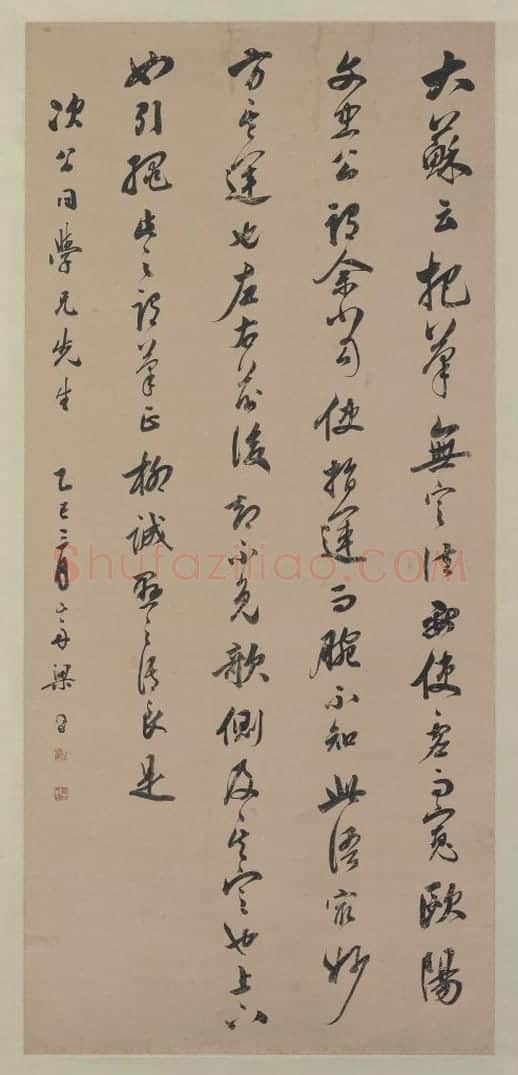 大蘇云把筆無定法要使虛而寬歐陽
文忠公謂余當使指運而腕不知此語最妙
方其運也左右前後卻不免欹側及其定也上下
如引繩此之謂筆正柳誠懸之語良是
次公同學兄先生 乙巳三月 山舟梁同書
Shufaziliao.COM